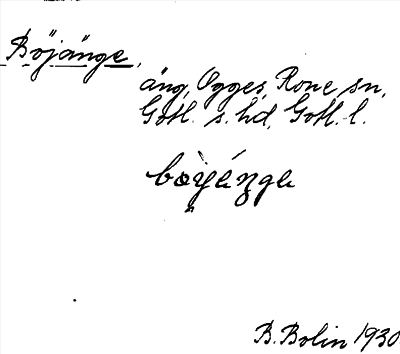 Böjänge,
äng, Ogges, Rone sn,
Gotl. s. hd, Gotl. l.
B. Bolin 1930